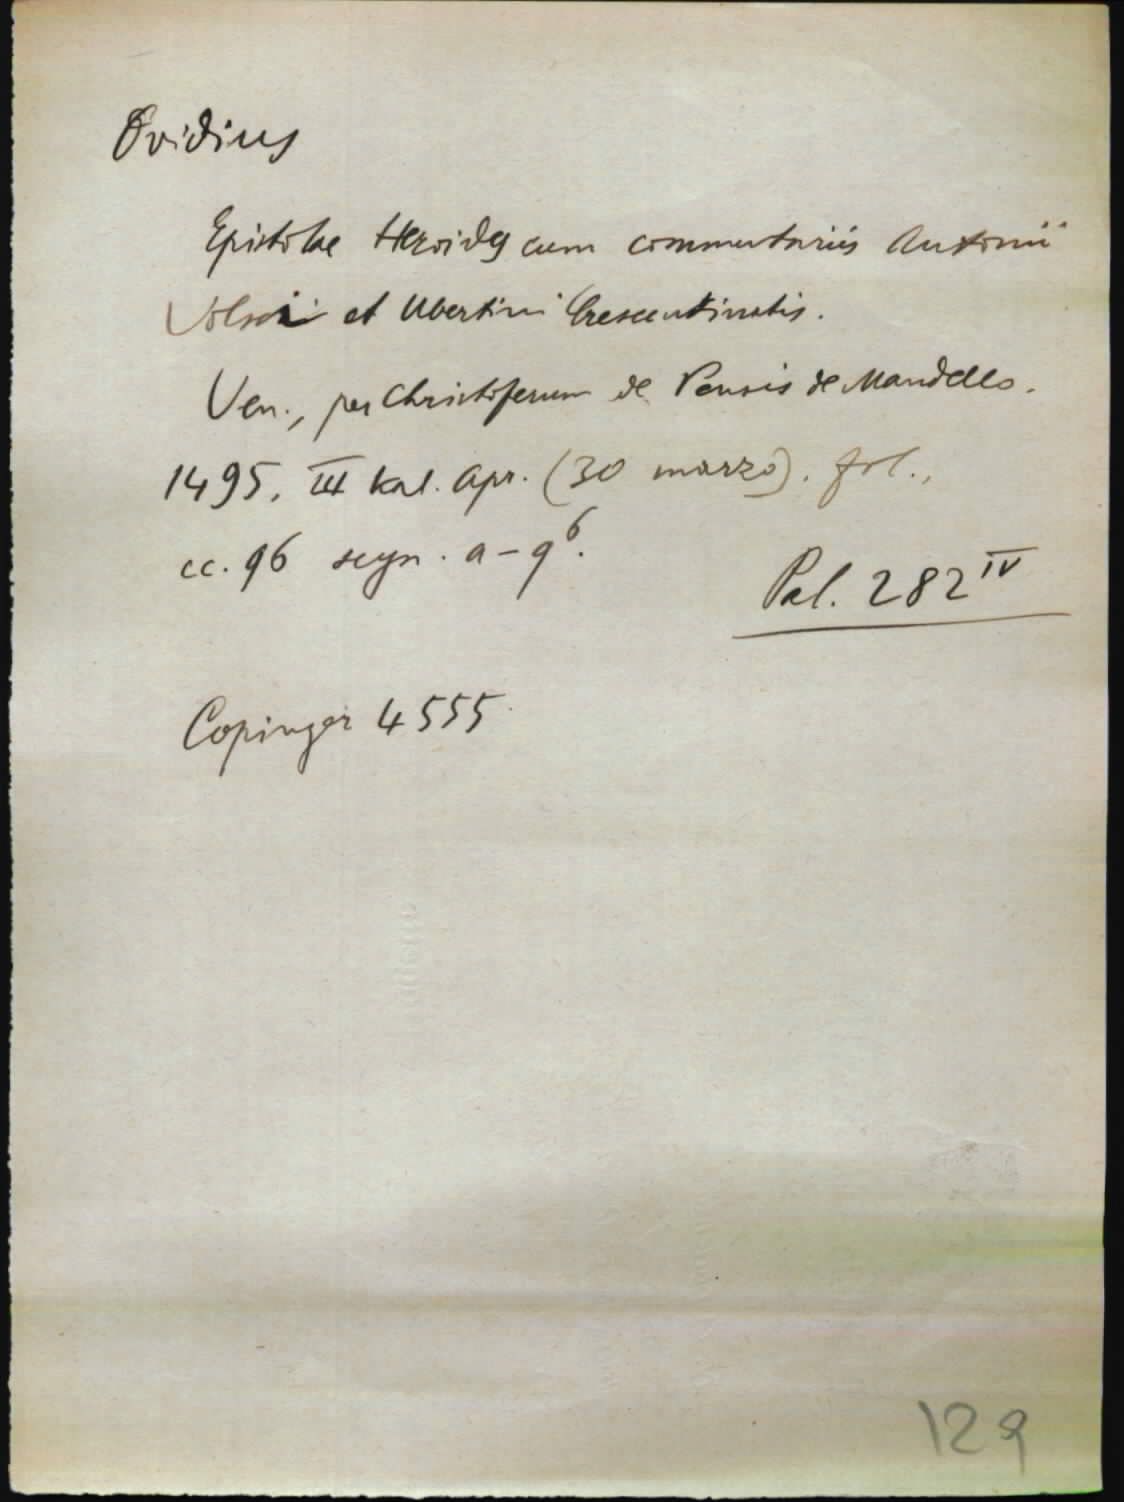 Ovidius
Epistolae Heroides cum commentariis Antonii
Volsci et Ubertini Crescentinatis.
Ven., per Christoferum de Pensis de Mandello.
1495, III kal. apr. (30 marzo). fol.,
cc. 96 segn. a-q⁶.
Pal. 282 IV
Copinger 4555.
129